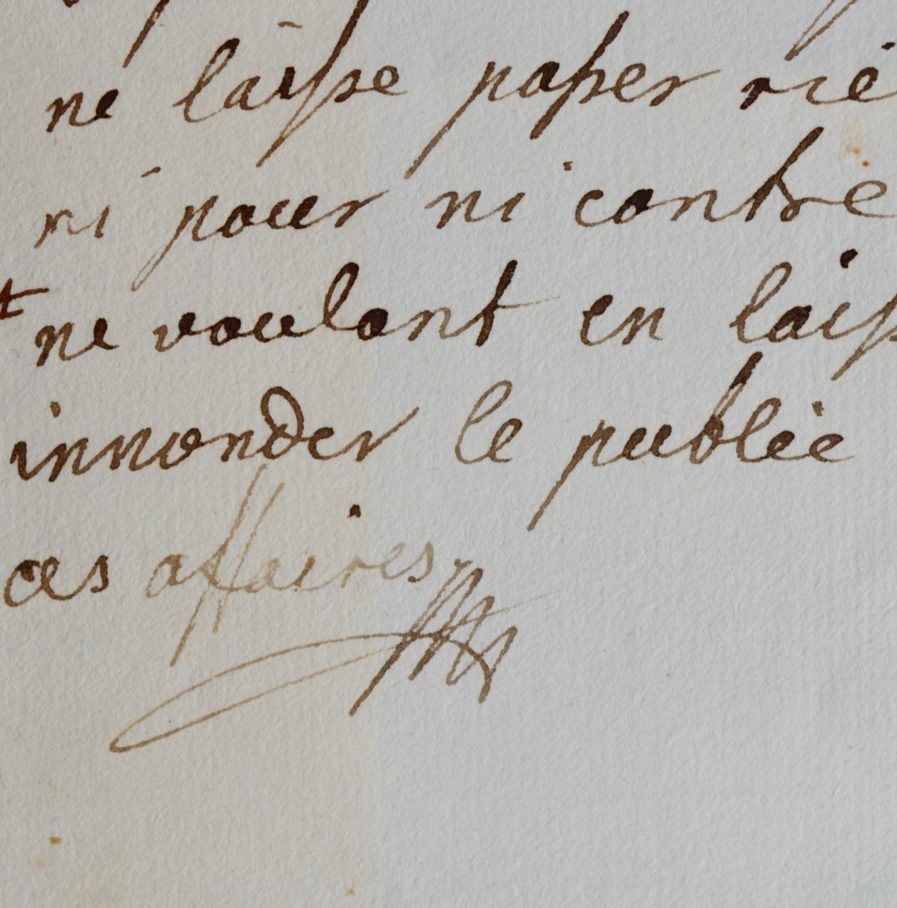 ne laisse passer rie
ni pour ni contre
ne voulant en laiss
innonder le publice
ces affaires